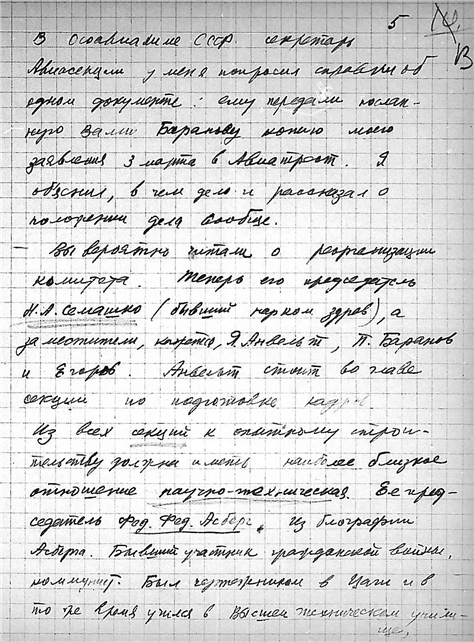 5
В Осоавиахиме СССР секретарь
Авиасекции у меня попросил справки об
одном документе: ему передали послан-
ную Вами Баранову копию моего
заявления 3 марта в Авиатрест. Я
объяснил, в чем дело и рассказал о
положении дела вообще.
— Вы вероятно читали о реорганизации
комитета. Теперь его председатель
Н.А. Семашко (бывший нарком здрав), а
заместители, кажется, Я. Анвельт, П. Баранов
и Егоров. Анвельт стоит во главе
секции по подготовке кадров
Из всех секций к опытному строи-
тельству должна иметь наиболее близкое
отношение научно-техническая. Ее пред-
седатель Фед. Фед. Асберг. Из биографии
Асберга. Бывший участник гражданской войны,
коммунист. Был чертежником в Цаги и в
то же время учился в Высшем техническом учили-
ще,